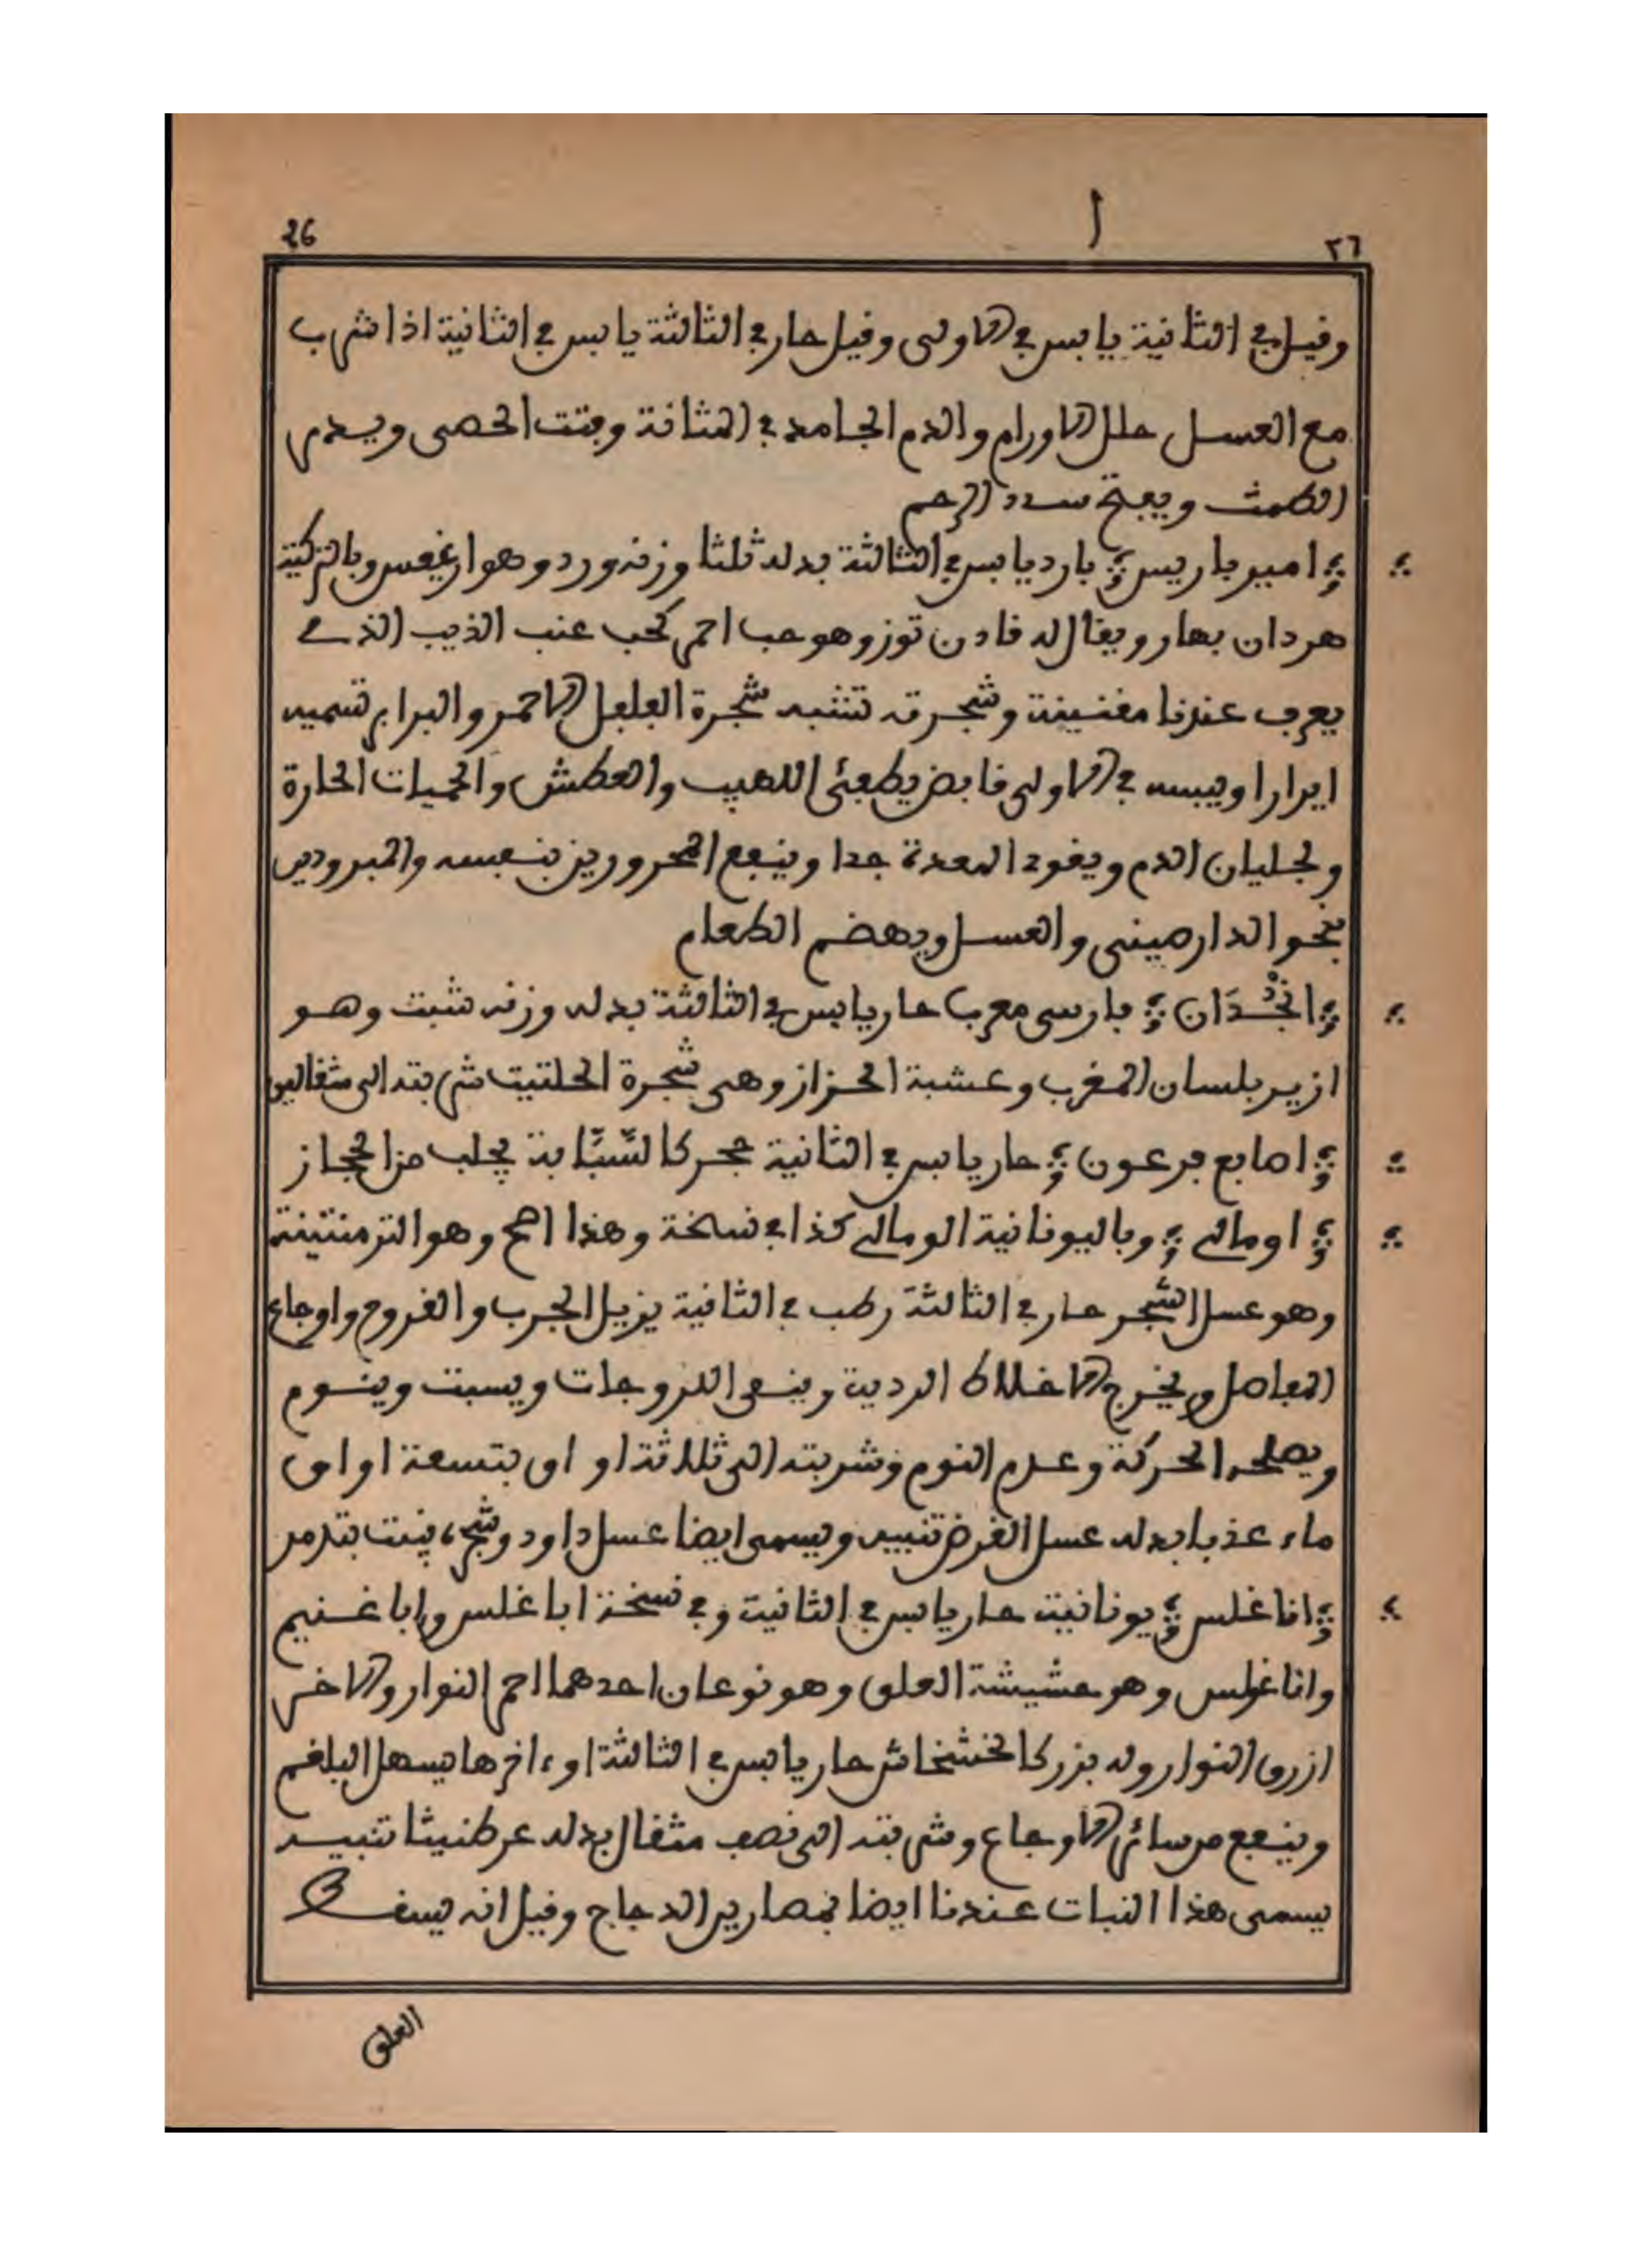 26
ا
٢٦
وقيل في الثانية يابس في الاولى وقيل حار في الثالثة يابس في الثانية اذا شرب
مع العسل حلل الاورام والدم الجامد في المثانة وفتت الحصى ويدر
الطمث ويفتح سدد الرحم
امير باريس بارد يابس في الثالثة بدله ثلثا وزنه ورد وهو ارغيس وبالتركية
هردان بهار ويقال له قادن توز وهو حب احمر كحب عنب الذيب الذي
يعرف عندنا مقنينة وشجرته تشبه شجرة الفلفل الاحمر والبرابر تسميه
ايرارا ويبسه في الاولى قابض يطفئ اللهيب والعطش والحميات الحارة
ولجليان الدم ويقود المعدة جدا وينفع المحرورين بنفسه والمبرودين
بنحو الدارصينى والعسل ويهضم الطعام
انْجُدَان فارسى معرب حار يابس في الثالثة بدله وزنه شبت وهو
ازير بلسان المغرب وعشبة الحزاز وهى شجرة الحلتيت شربته الى مثقالين
اصابع فرعون حار يابس في الثانية حجر كالسَّبَّابة يجلب من الحجاز
اومالي وباليونانية الومالي كذا في نسخة وهذا اصح وهو الترمنتينة
وهو عسل الشجر حار في الثالثة رطب في الثانية يزيل الجرب والقروح واوجاع
المفاصل ويخرج الاخلاط الردية وينقى اللزوجات ويسبت وينوم
ويصلحه الحركة وعدم النوم وشربته الى ثلاثة اواق بتسعة اواق
ماء عذبا بدله عسل القرض تنبيه ويسمى ايضا عسل داود وشجره ينبت بتدمر
اناغلس يونانية حار يابس في الثانية وفي نسخة اباغلس واباغنيم
واناغولس وهو حشيشة العلق وهو نوعان احدهما احمر النوار والاخر
ازرق النوار وله بزر كالخشخاش حار يابس في الثالثة او ءاخرها يسهل البلغم
وينفع من سائر الاوجاع وشربته الى نصف مثقال بدله عرطنيثا تنبيه
يسمى هذا النبات عندنا ايضا بمصارير الدجاج وقيل انه يسقط
العلق